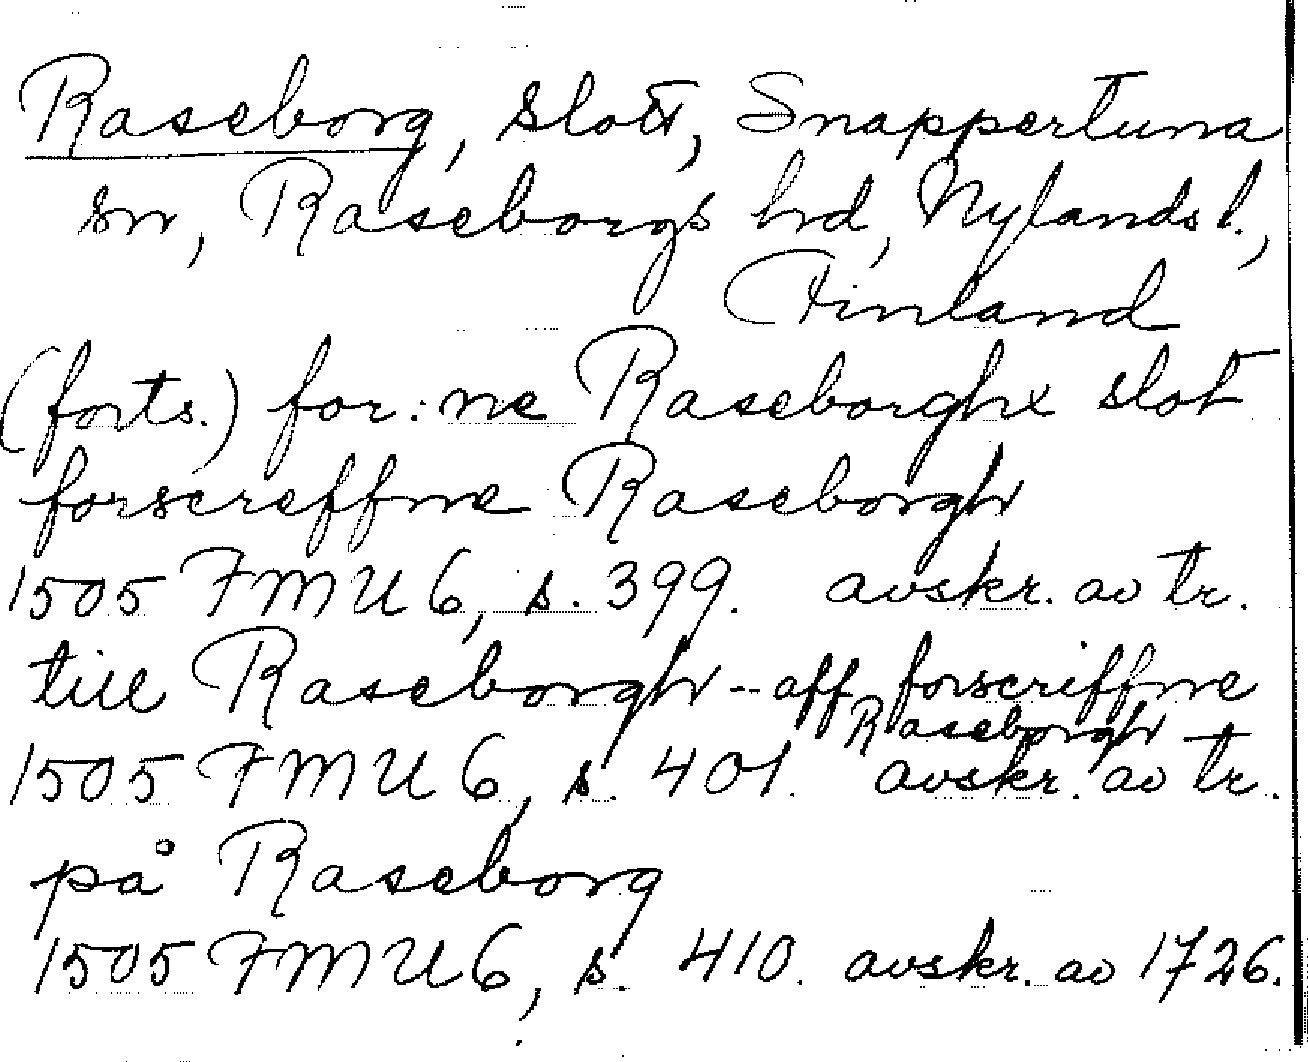 Raseborg, slott, Snappertuna
sn, Raseborgs hd, Nylands l.,
Finland
(forts.) for:ne Raseborghx slot
forscreffne Raseborgh
1505 FMU 6, s. 399. avskr. av tr.
till Raseborgh -- aff forscriffne
Raseborgh
1505 FMU 6, s. 401. avskr. av tr.
på Raseborg
1505 FMU 6, s. 410. avskr. av 1726.